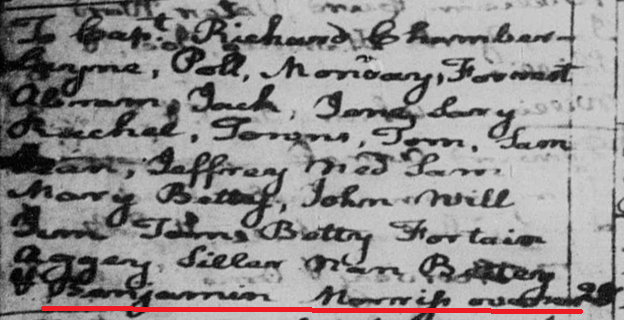 To Capt Richard Chamber-
layne, Poll, Monday, Forrest
Abram, Jack, Jone, Sary
Rachel, Towns, Tom, Sam
Jeffrey Ned Sam
Mary Betty, John Will
Towns Betty Fortain
Aggey Siller Nan Betty
& Benjamin Morris overseer 28